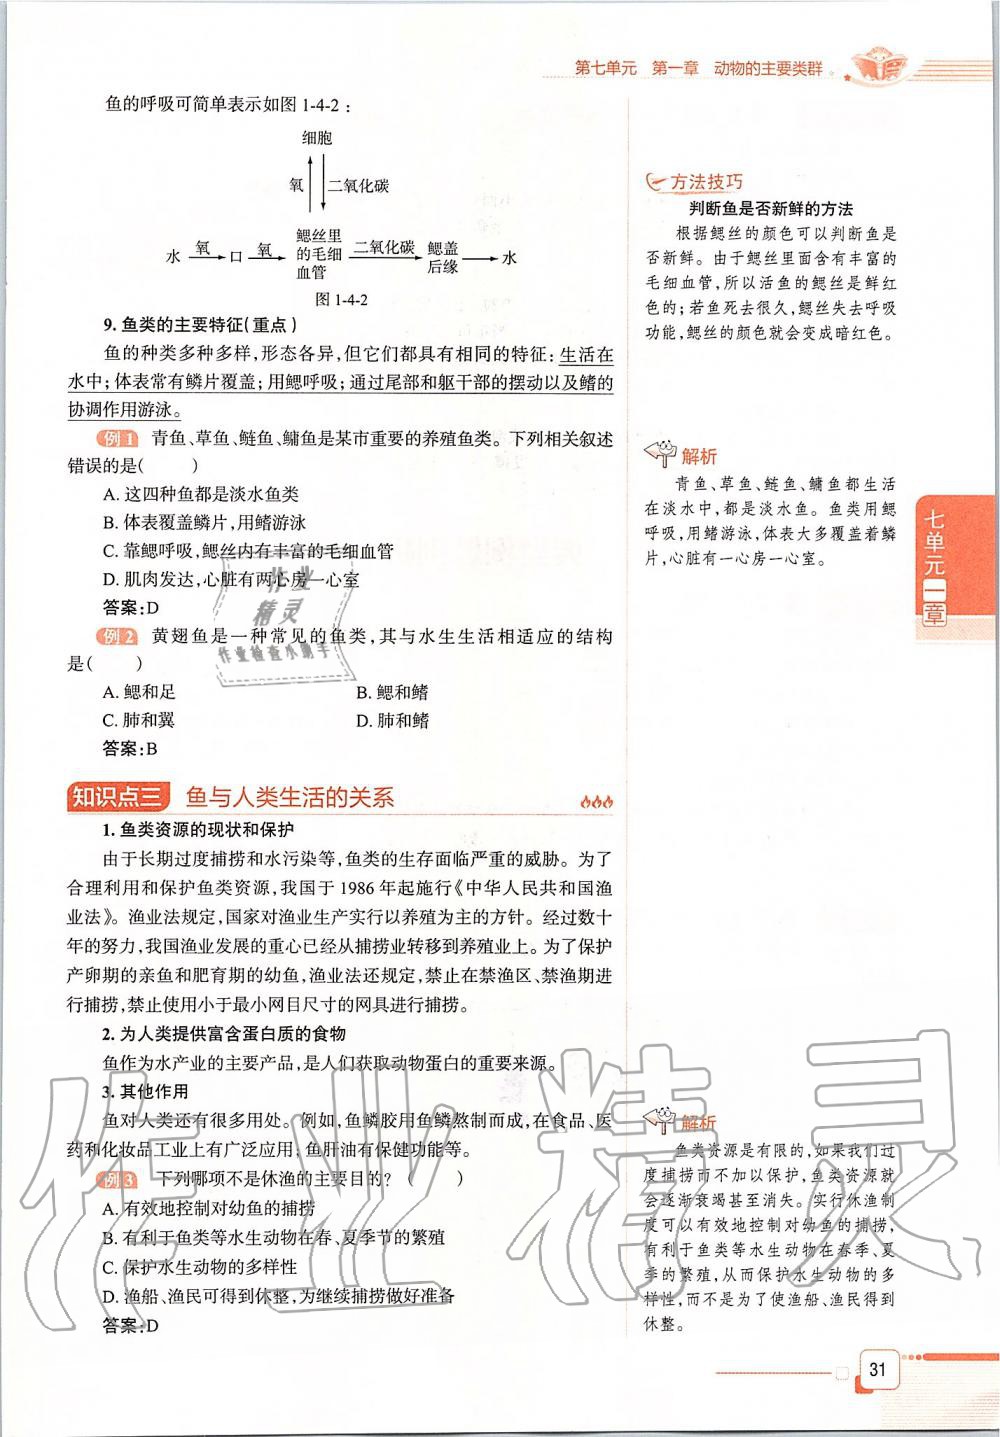 第七单元　第一章　动物的主要类群
鱼的呼吸可简单表示如图1-4-2：
细胞
氧　二氧化碳
水　氧　口　氧　鳃丝里的毛细血管　二氧化碳　鳃盖后缘　水
图1-4-2
9. 鱼类的主要特征(重点)
鱼的种类多种多样,形态各异,但它们都具有相同的特征:生活在
水中;体表常有鳞片覆盖;用鳃呼吸;通过尾部和躯干部的摆动以及鳍的
协调作用游泳。
例1　青鱼、草鱼、鲢鱼、鳙鱼是某市重要的养殖鱼类。下列相关叙述
错误的是(　　)
A. 这四种鱼都是淡水鱼类
B. 体表覆盖鳞片,用鳍游泳
C. 靠鳃呼吸,鳃丝内有丰富的毛细血管
D. 肌肉发达,心脏有两心房一心室
答案:D
例2　黄翅鱼是一种常见的鱼类,其与水生生活相适应的结构
是(　　)
A. 鳃和足　　B. 鳃和鳍
C. 肺和翼　　D. 肺和鳍
答案:B
知识点三　鱼与人类生活的关系
1. 鱼类资源的现状和保护
由于长期过度捕捞和水污染等,鱼类的生存面临严重的威胁。为了
合理利用和保护鱼类资源,我国于1986年起施行《中华人民共和国渔
业法》。渔业法规定,国家对渔业生产实行以养殖为主的方针。经过数十
年的努力,我国渔业发展的重心已经从捕捞业转移到养殖业上。为了保护
产卵期的亲鱼和肥育期的幼鱼,渔业法还规定,禁止在禁渔区、禁渔期进
行捕捞,禁止使用小于最小网目尺寸的网具进行捕捞。
2. 为人类提供富含蛋白质的食物
鱼作为水产业的主要产品,是人们获取动物蛋白的重要来源。
3. 其他作用
鱼对人类还有很多用处。例如,鱼鳞胶用鱼鳞熬制而成,在食品、医
药和化妆品工业上有广泛应用,鱼肝油有保健功能等。
例3　下列哪项不是休渔的主要目的?(　　)
A. 有效地控制对幼鱼的捕捞
B. 有利于鱼类等水生动物在春、夏季节的繁殖
C. 保护水生动物的多样性
D. 渔船、渔民可得到休整,为继续捕捞做好准备
答案:D
方法技巧
判断鱼是否新鲜的方法
根据鳃丝的颜色可以判断鱼是
否新鲜。由于鳃丝里面含有丰富的
毛细血管,所以活鱼的鳃丝是鲜红
色的;若鱼死去很久,鳃丝失去呼吸
功能,鳃丝的颜色就会变成暗红色。
解析
青鱼、草鱼、鲢鱼、鳙鱼都生活
在淡水中,都是淡水鱼。鱼类用鳃
呼吸,用鳍游泳,体表大多覆盖着鳞
片,心脏有一心房一心室。
解析
鱼类资源是有限的,如果我们过
度捕捞而不加以保护,鱼类资源就
会逐渐衰竭甚至消失。实行休渔制
度可以有效地控制对幼鱼的捕捞,
有利于鱼类等水生动物在春季、夏
季的繁殖,从而保护水生动物的多
样性,而不是为了使渔船、渔民得到
休整。
七单元一章
31
作业精灵
作业检查小助手
作业精灵